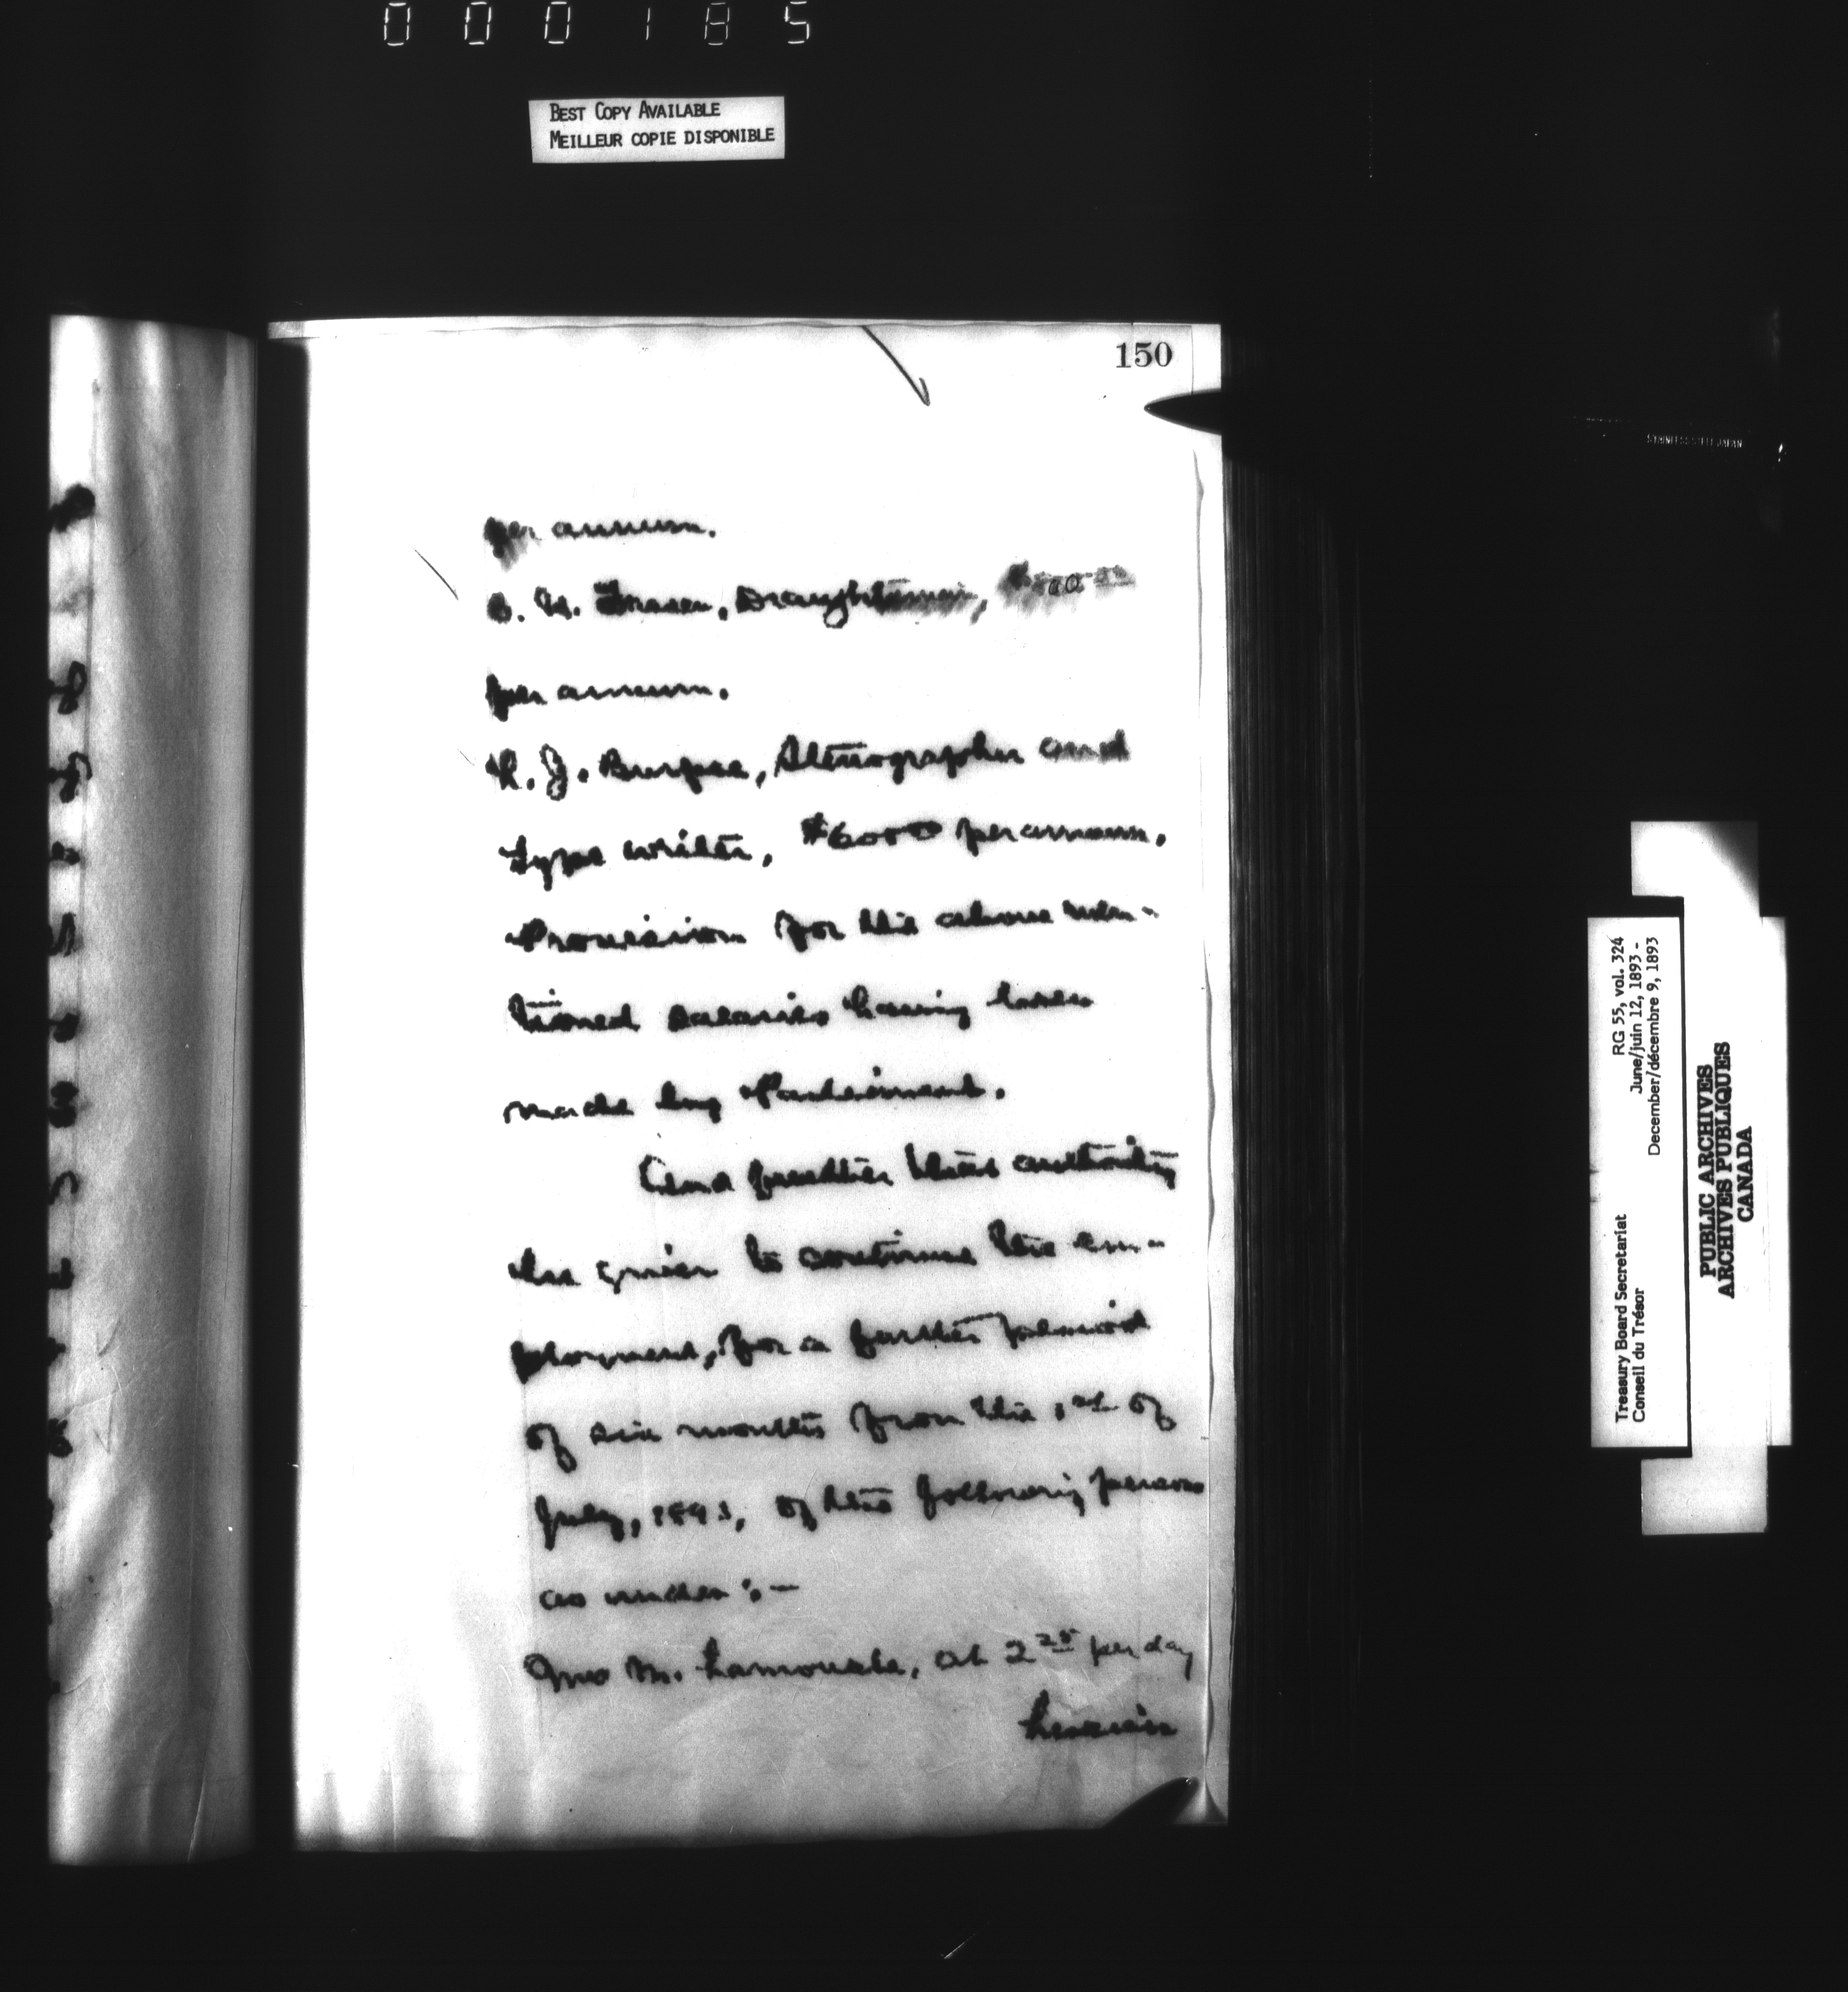 000185
BEST COPY AVAILABLE
MEILLEUR COPIE DISPONIBLE
150
per annum.
Fraser, Draughtsman,
per annum.
L. J. Burpee, Stenographer and
type writer, $600 00 per annum.
Provision for the above men-
tioned salaries having been
made by Parliament.
And further that authority
be given to continue the em-
ployment, for a further period
of six months from the 1st of
July, 1893, of the following persons
as under :—
Jno M. Lamoureux, at 2 25 per day
STAINLESS STEEL JAPAN
Treasury Board Secretariat
Conseil du Trésor
RG 55, vol. 324
June/juin 12, 1893 -
December/décembre 9, 1893
PUBLIC ARCHIVES
ARCHIVES PUBLIQUES
CANADA